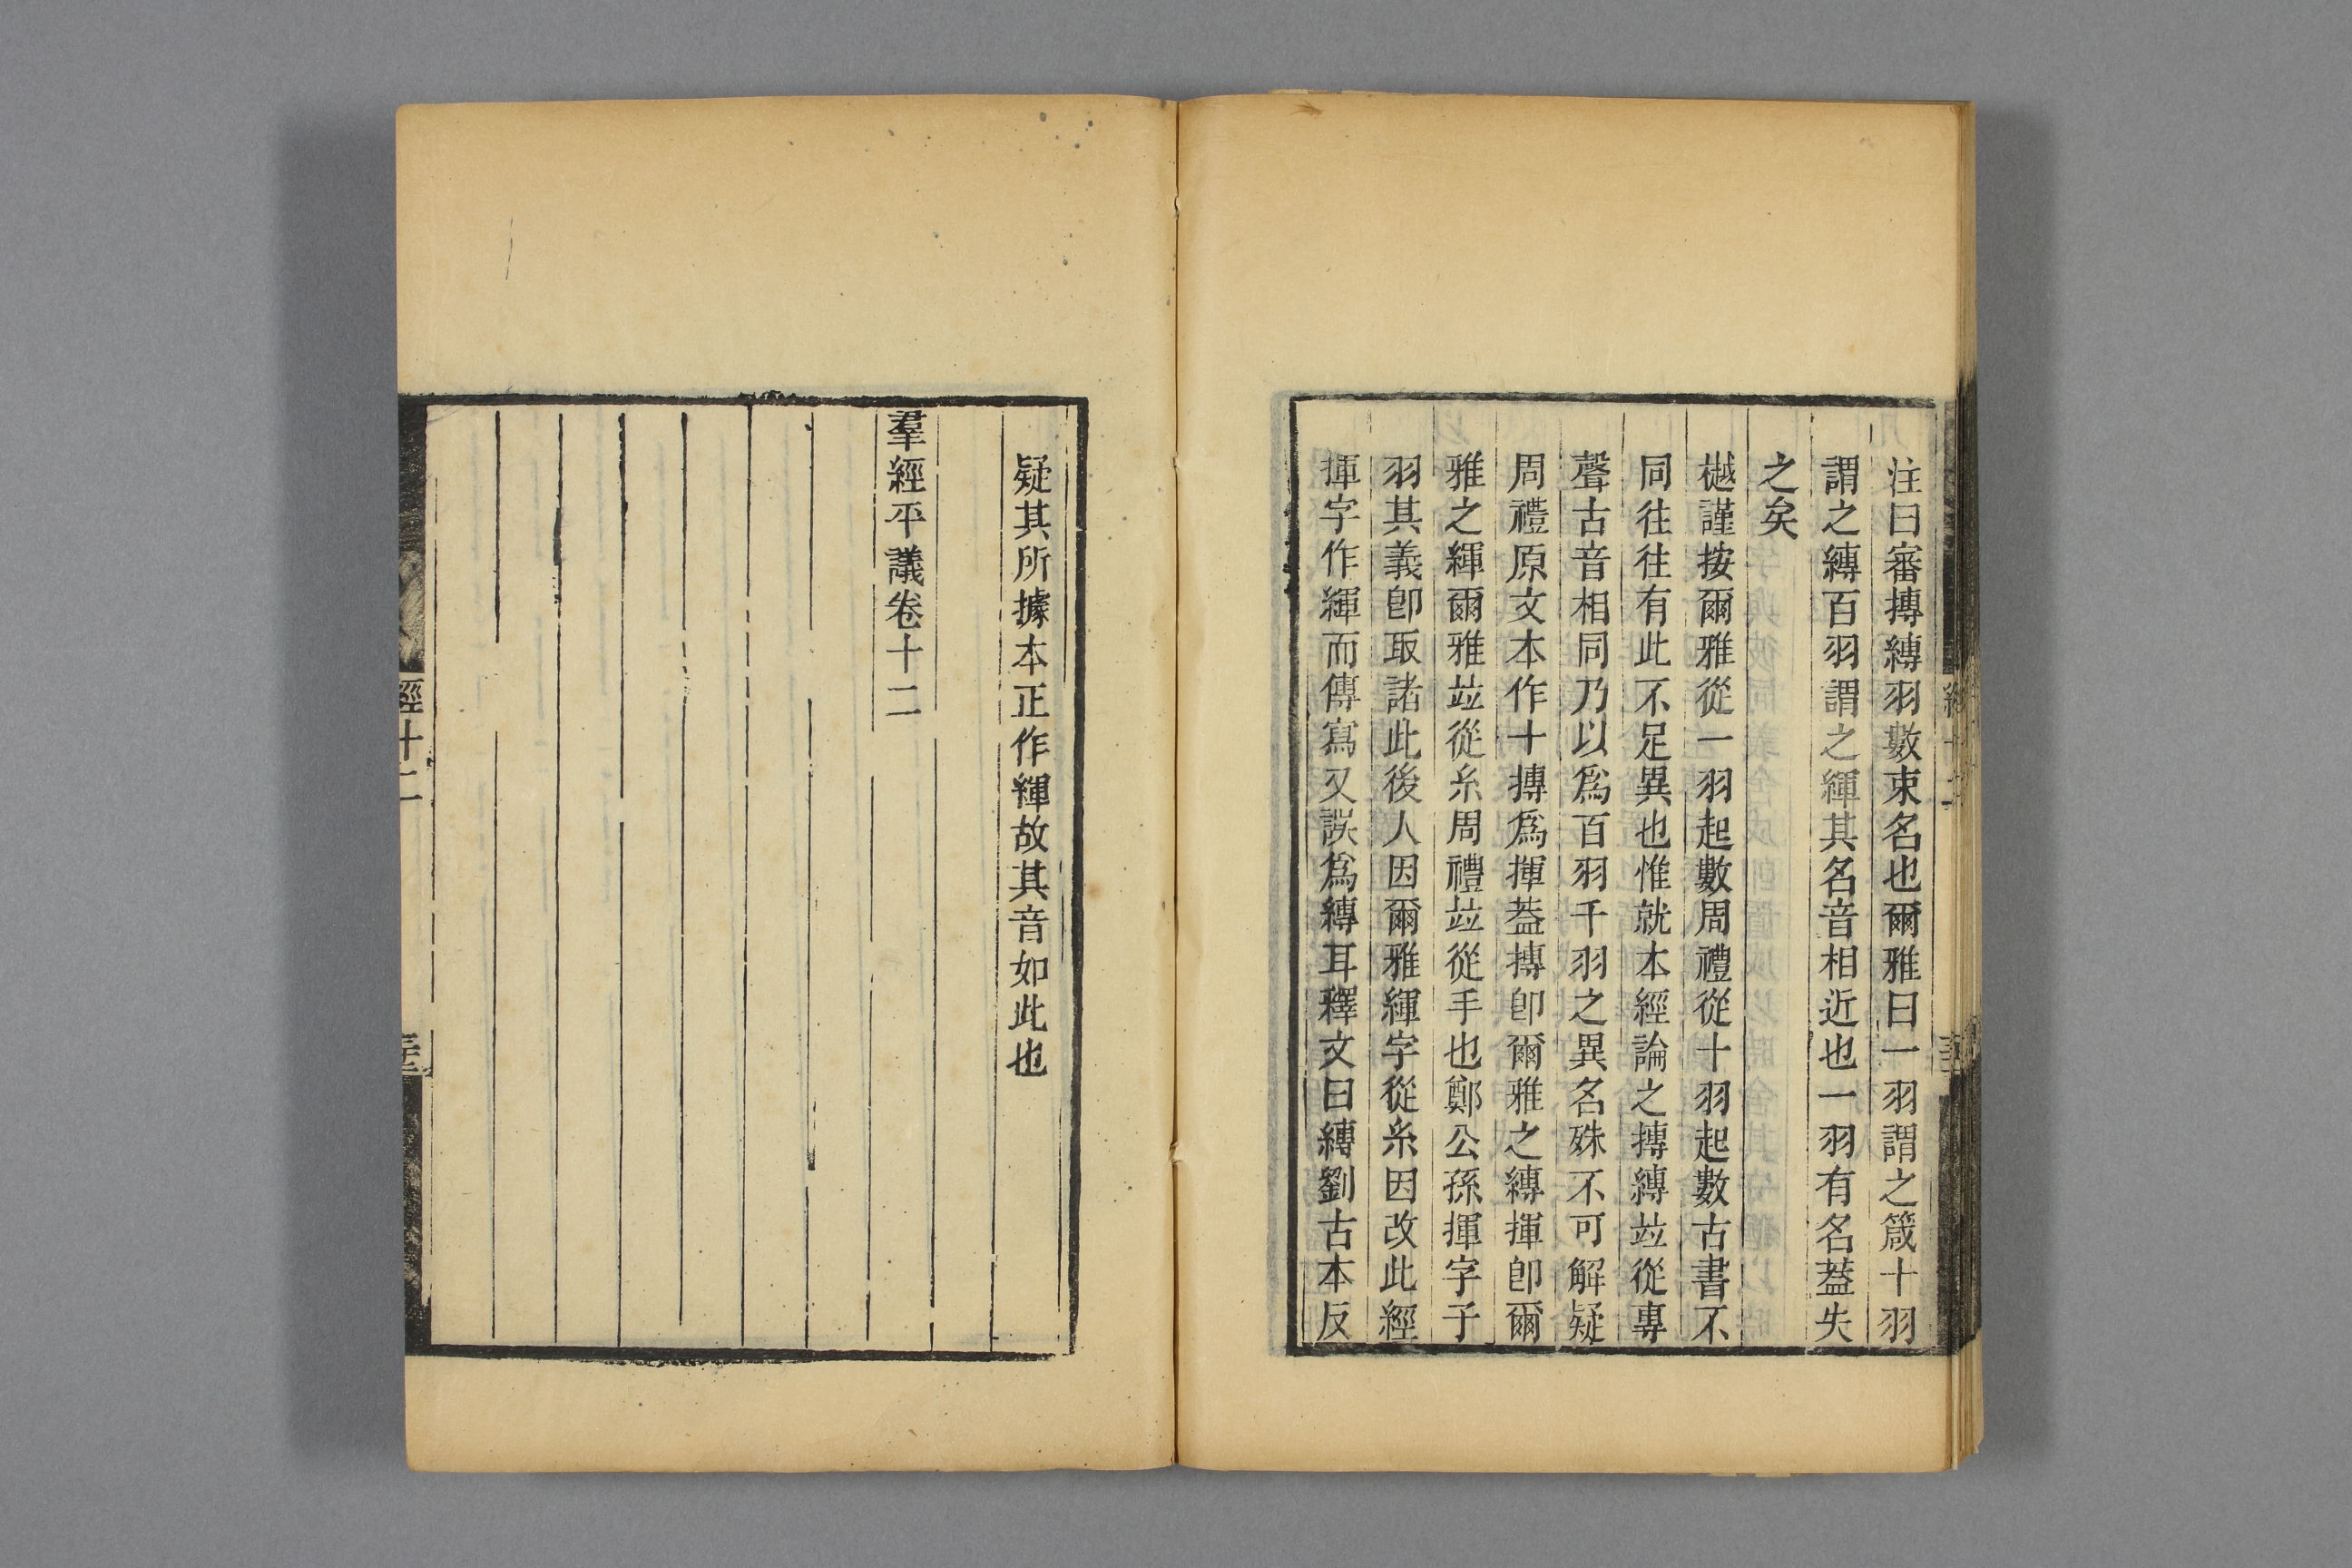 注曰審摶縳羽數束名也爾雅曰一羽謂之箴十羽
謂之縳百羽謂之緷其名音相近也一羽有名葢失
之矣
樾謹按爾雅從一羽起數周禮從十羽起數古書不
同往往有此不足異也惟就本經論之摶縳竝從專
聲古音相同乃以爲百羽千羽之異名殊不可解疑
周禮原文本作十摶爲揮葢摶卽爾雅之縳揮卽爾
雅之緷爾雅竝從糸周禮竝從手也鄭公孫揮字子
羽其義卽取諸此後人因爾雅緷字從糸因改此經
揮字作緷而傳寫又誤爲縳耳釋文曰縳劉古本反
疑其所據本正作緷故其音如此也
羣經平議卷十二
經十二